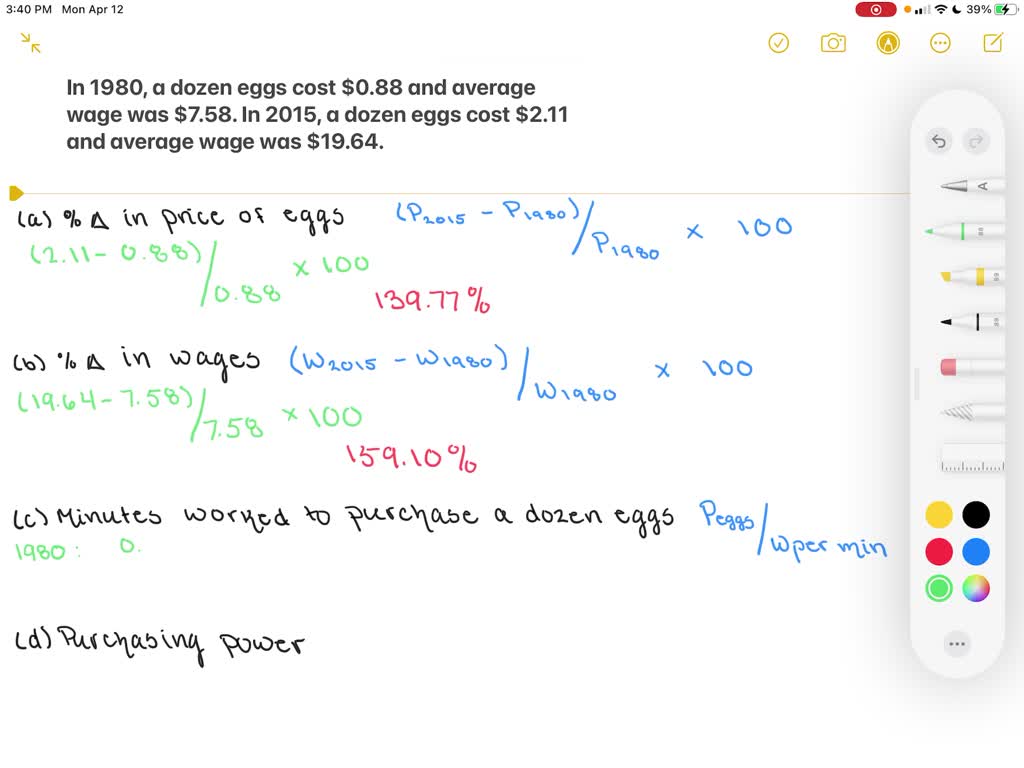 3:40 PM Mon Apr 12
39%
In 1980, a dozen eggs cost $0.88 and average
wage was $7.58. In 2015, a dozen eggs cost $2.11
and average wage was $19.64.
(a) % Δ in price of eggs (P2015 - P1980)/P1980 x 100
(2.11 - 0.88)/0.88 x 100
139.77%
(b) % Δ in wages (W2015 - W1980)/W1980 x 100
(19.64 - 7.58)/7.58 x 100
159.10%
(c) Minutes worked to purchase a dozen eggs Peggs/Wper min
1980: 0.
(d) Purchasing power